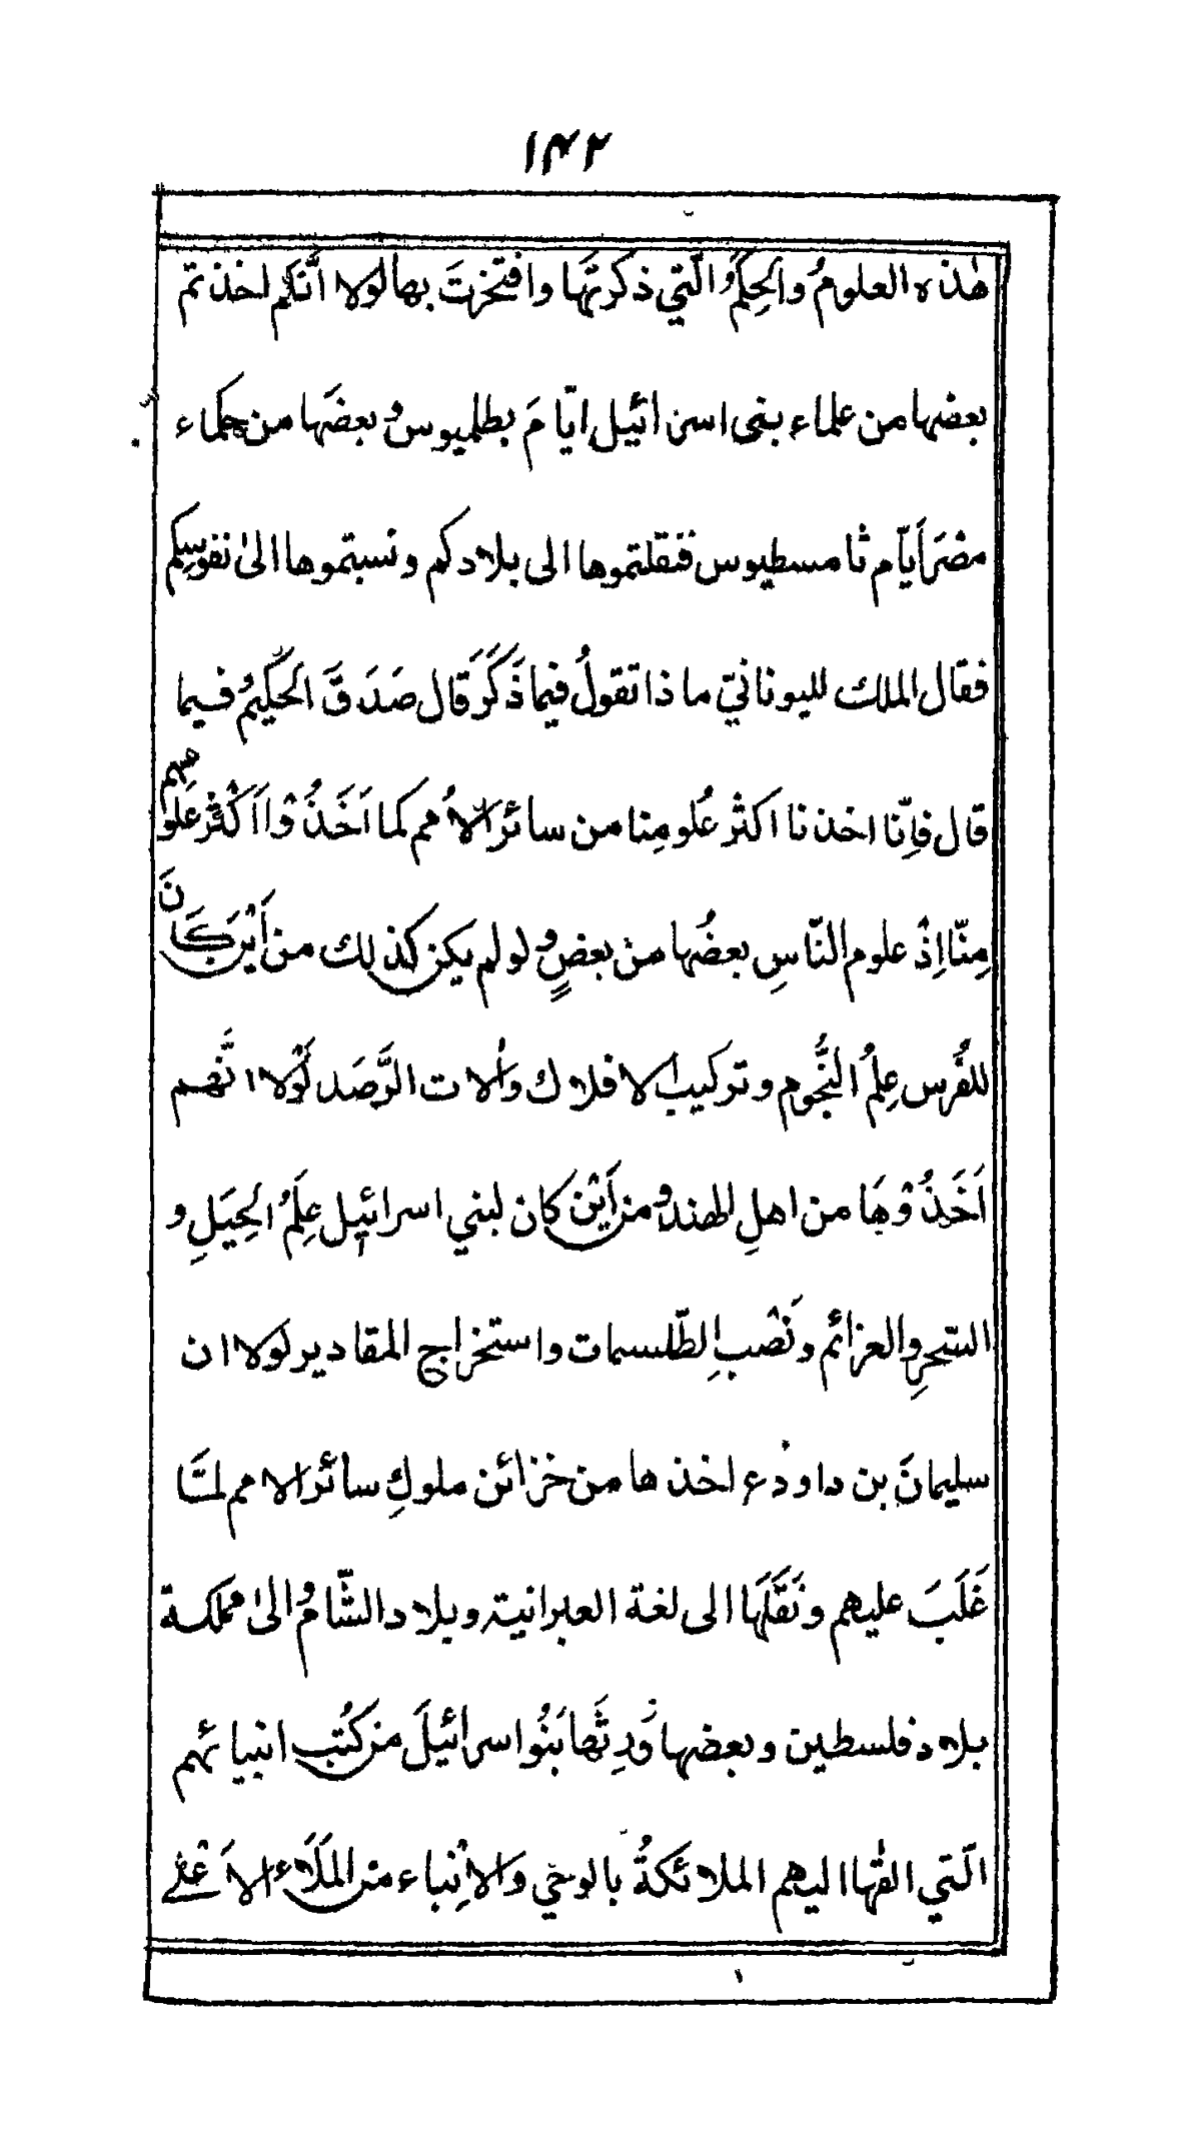 ۱۴۲
هٰذه العلومُ والحِكَمُ الَّتي ذكرتَها وافتخرتَ بها لولا اَنَّكم اخذتم
بعضها من علماء بنى اسرائيل ايّامَ بطلميوس وبعضَها من حكماء
مصْرَ اَيّام ثامسطيوس فنقلتموها الى بلادكم ونسبتموها الىٰ نفوسِكم
فقال الملك لليونانيّ ماذا تقولُ فيما ذَكَرَ قال صَدَقَ الحَكيمُ فيما
قال فاِنّا اخذنا اكثرَ عُلومِنا من سائر الاُمم كما اَخَذُوْا اَكْثَرَ عَلومهم
مِنّا اِذْ علوم النّاسِ بعضُها منْ بعضٍ ولو لم يكن كذلك من اَيْنَ كَانَ
للفُرس عِلمُ النُّجُوم وتركيب الافلاك واٰلات الرَّصَد لَوْلا انَّهم
اَخَذُوْهَا من اهلِ الهند ومن اَيْنَ كان لبني اسرائيل عِلَمُ الحِيَلِ و
السّحرِ والعزائم ونَصْبِ الطّلسمات واستخراج المقادير لولا ان
سليمانَ بن داودؑ اخذها من خزائن ملوكِ سائر الامم لمَّا
غَلَبَ عليهم ونَقَلَهَا الى لغة العبرانية وبلاد الشّام والىٰ مملكة
بلاد فلسطين وبعضها وَرِثَها بَنُو اسرائيلَ من كتُب انبيائهم
الّتي القٰها اليهم الملائكةُ بالوحي والاَنْباء من المَلَاء الاَعْلٰے